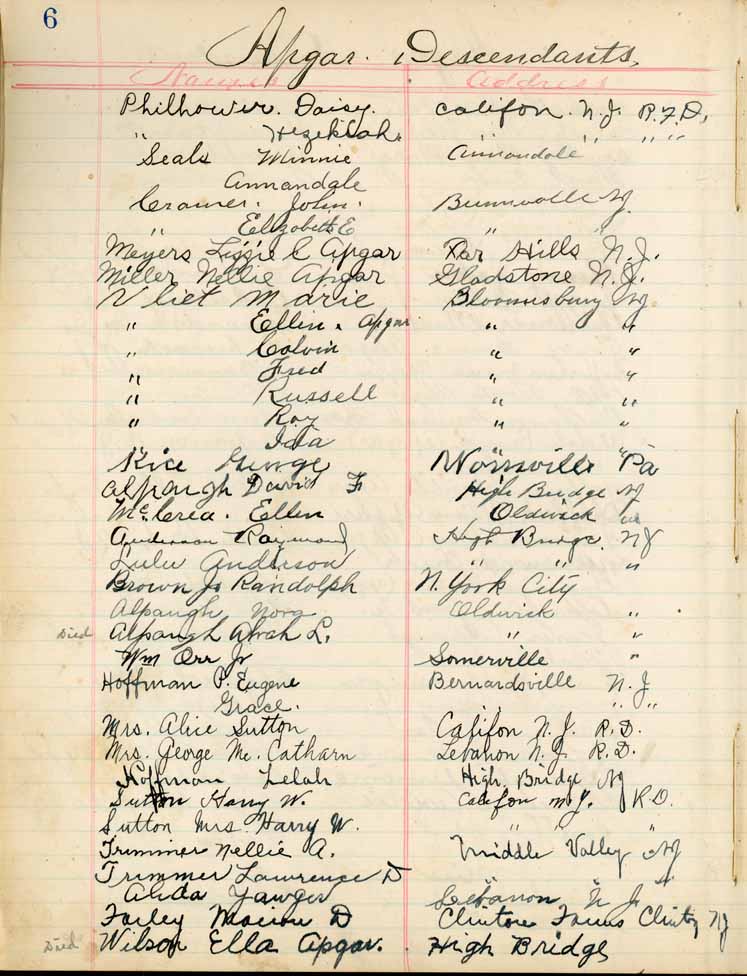 6
Apgar. Descendants.
Names Address
Philhower. Daisy. Califon. N.J. R.F.D.
" Hezekiah. " " "
Seals Minnie Annandale
Annandale
Cramer. John. Bunnvalle NJ.
" Elizabeth E " "
Meyers Lizzie C Apgar Far Hills N.J.
Miller Nellie Apgar Gladstone N.J.
Vliet Marie Bloomsbury NJ
" Ellin. Apgar " "
" Colvin " "
" Fred " "
" Russell " "
" Roy " "
" Ida "
Rice George Pa
Alpaugh David F High Bridge NJ
McCrea. Ellen Oldwick "
Anderson Raymond High Bridge. NJ
Lulu Anderson " " "
Brown Jr Randolph N. York City
Alpaugh Nora Oldwick " .
Died Alpaugh L. " "
Wm Orr Jr Somerville "
Hoffman P. Eugene Bernardsville N.J
Grace. " " "
Mrs. Alice Sutton Califon N.J. R.D.
Mrs. George Mc. Catharn Lebanon N.J. R.D.
Hoffman Lelah High, Bridge NJ
Sutton Harry W. Califon N.J. R.D.
Sutton Mrs. Harry W. " " "
Trimmer Nellie A. Middle Valley NJ
Trimmer Lawrence D " " "
Alida Yawger Lebanon N J
Farley Marion D Clinton NJ
Died Wilson Ella Apgar. High Bridge